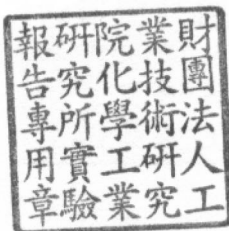 財團法人工
業技術研究
院化學工業
研究所實驗
報告專用章